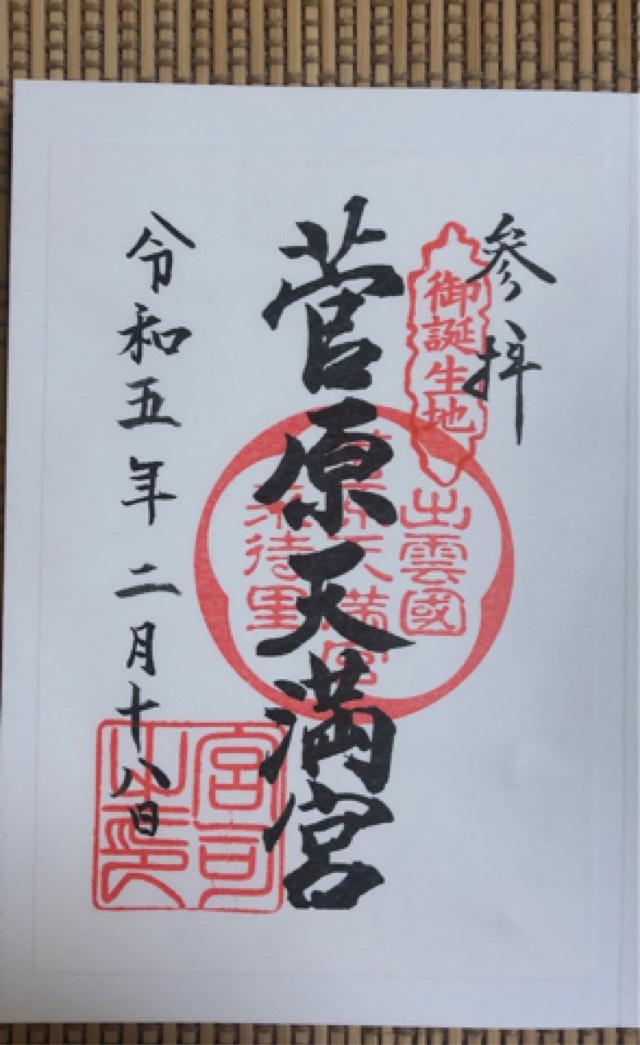 参拝
御誕生地
出雲國
菅原天満宮
菅原天満宮
来待里
令和五年二月十八日
宮司之印